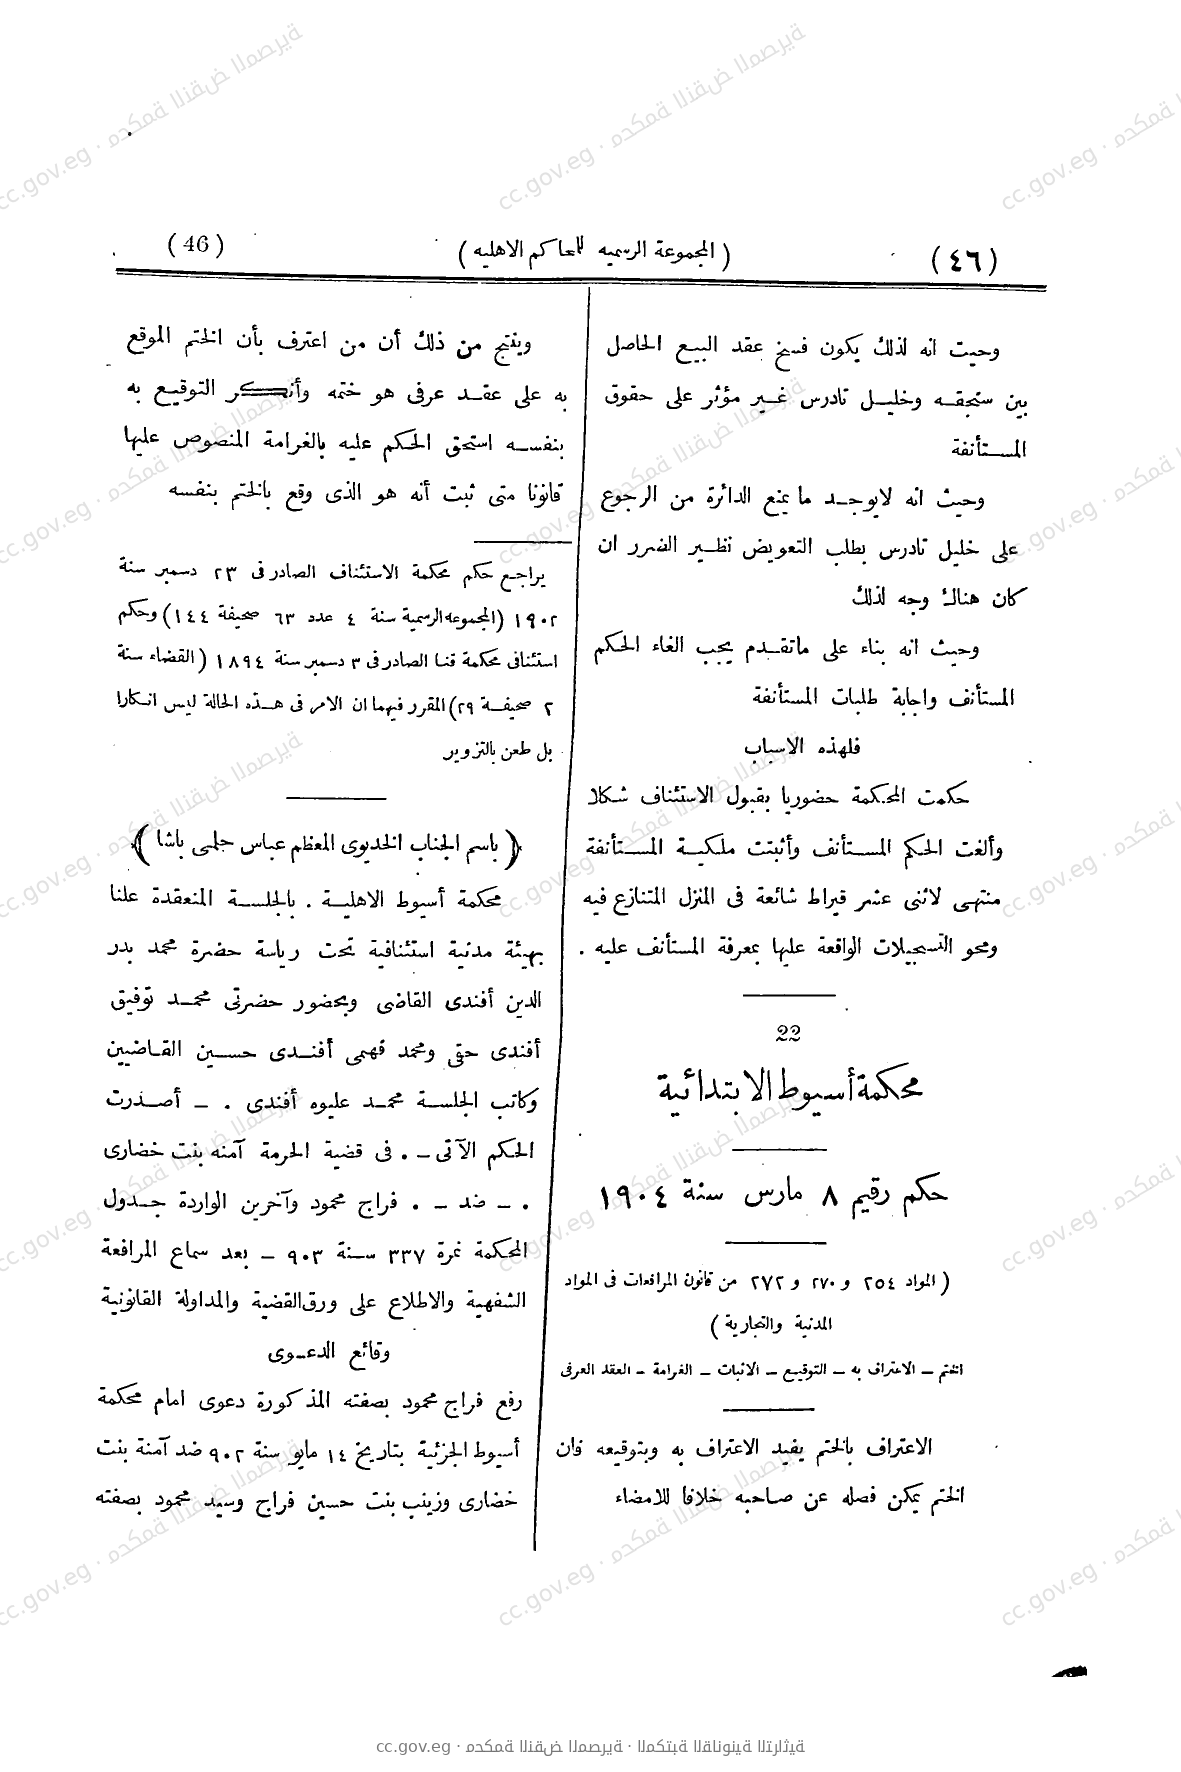 (٤٦)
( المجموعة الرسميه للمحاكم الاهليه )
(46)
وحيث انه لذلك يكون فسخ عقد البيع الحاصل
بين ستجقه وخليل تادرس غير مؤثر على حقوق
المستأنفة
وحيث انه لايوجد ما يمنع الدائرة من الرجوع
على خليل تادرس بطلب التعويض نظير الضرر ان
كان هناك وجه لذلك
وحيث انه بناء على ماتقدم يجب الغاء الحكم
المستأنف واجابة طلبات المستأنفة
فلهذه الاسباب
حكمت المحكمة حضوريا بقبول الاستئناف شكلا
وألغت الحكم المستأنف وأثبتت ملكية المستأنفة
منتهى لاثنى عشر قيراط شائعة فى المنزل المتنازع فيه
ومحو التسجيلات الواقعة عليها بمعرفة المستأنف عليه .
22
محكمة أسيوط الابتدائية
حكم رقيم ٨ مارس سنة ١٩٠٤
( المواد ٢٥٤ و ٢٧٠ و ٢٧٢ من قانون المرافعات فى المواد
المدنية والتجارية )
الختم – الاعتراف به – التوقيع – الاثبات – الغرامة – العقد العرفى
الاعتراف بالختم يفيد الاعتراف به وبتوقيعه فان
الختم يمكن فصله عن صاحبه خلافا للامضاء
وينتج من ذلك أن من اعترف بأن الختم الموقع
به على عقد عرفى هو ختمه وأنكر التوقيع به
بنفسه استحق الحكم عليه بالغرامة المنصوص عليها
قانونا متى ثبت أنه هو الذى وقع بالختم بنفسه
يراجع حكم محكمة الاستئناف الصادر فى ٢٣ دسمبر سنة
١٩٠٢ (المجموعه الرسمية سنة ٤ عدد ٦٣ صحيفة ١٤٤) وحكم
استئنافى محكمة قنا الصادر فى ٣ دسمبر سنة ١٨٩٤ (القضاء سنة
٢ صحيفة ٢٩) المقرر فيهما ان الامر فى هذه الحالة ليس انكارا
بل طعن بالتزوير
﴿ باسم الجناب الخديوى المعظم عباس حلمى باشا ﴾
محكمة أسيوط الاهلية . بالجلسة المنعقدة علنا
بهيئة مدنية استئنافية تحت رياسة حضرة محمد بدر
الدين أفندى القاضى وبحضور حضرتى محمد توفيق
أفندى حقى ومحمد فهمى أفندى حسين القاضيين
وكاتب الجلسة محمد عليوه أفندى . – أصدرت
الحكم الآتى – . فى قضية الحرمة آمنه بنت خضارى
. – ضد – . فراج محمود وآخرين الواردة جدول
المحكمة نمرة ٣٣٧ سنة ٩٠٣ – بعد سماع المرافعة
الشفهية والاطلاع على ورق القضية والمداولة القانونية
وقائع الدعوى
رفع فراج محمود بصفته المذكورة دعوى امام محكمة
أسيوط الجزئية بتاريخ ١٤ مايو سنة ٩٠٢ ضد آمنة بنت
خضارى وزينب بنت حسين فراج وسيد محمود بصفته
cc.gov.eg · محكمة النقض المصرية · المكتبة القانونية التراثية